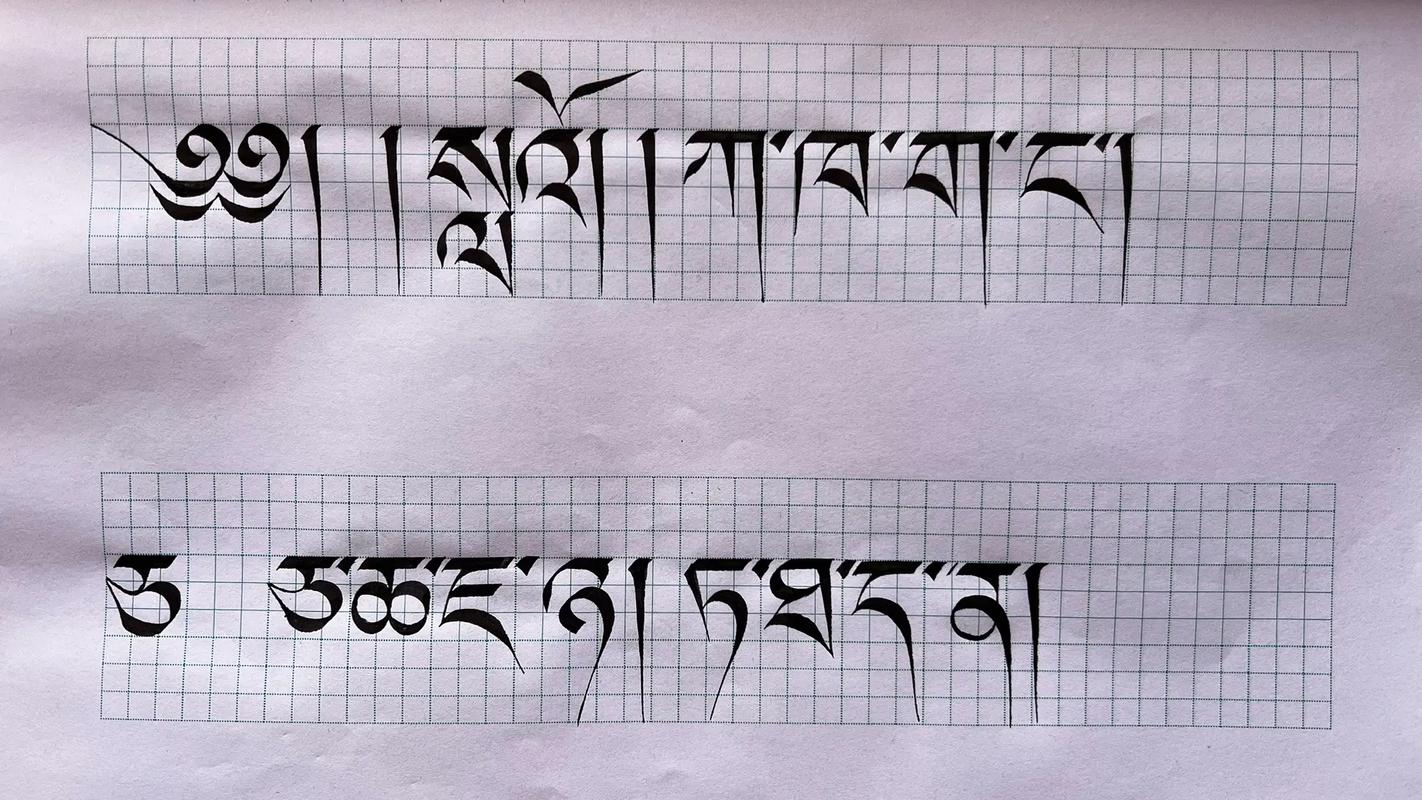 ༄༅། །སླལོ། །ཀ་ཁ་ག་ང་།
ཅ ཅ་ཆ་ཇ་ཉ། ཏ་ཐ་ད་ན།